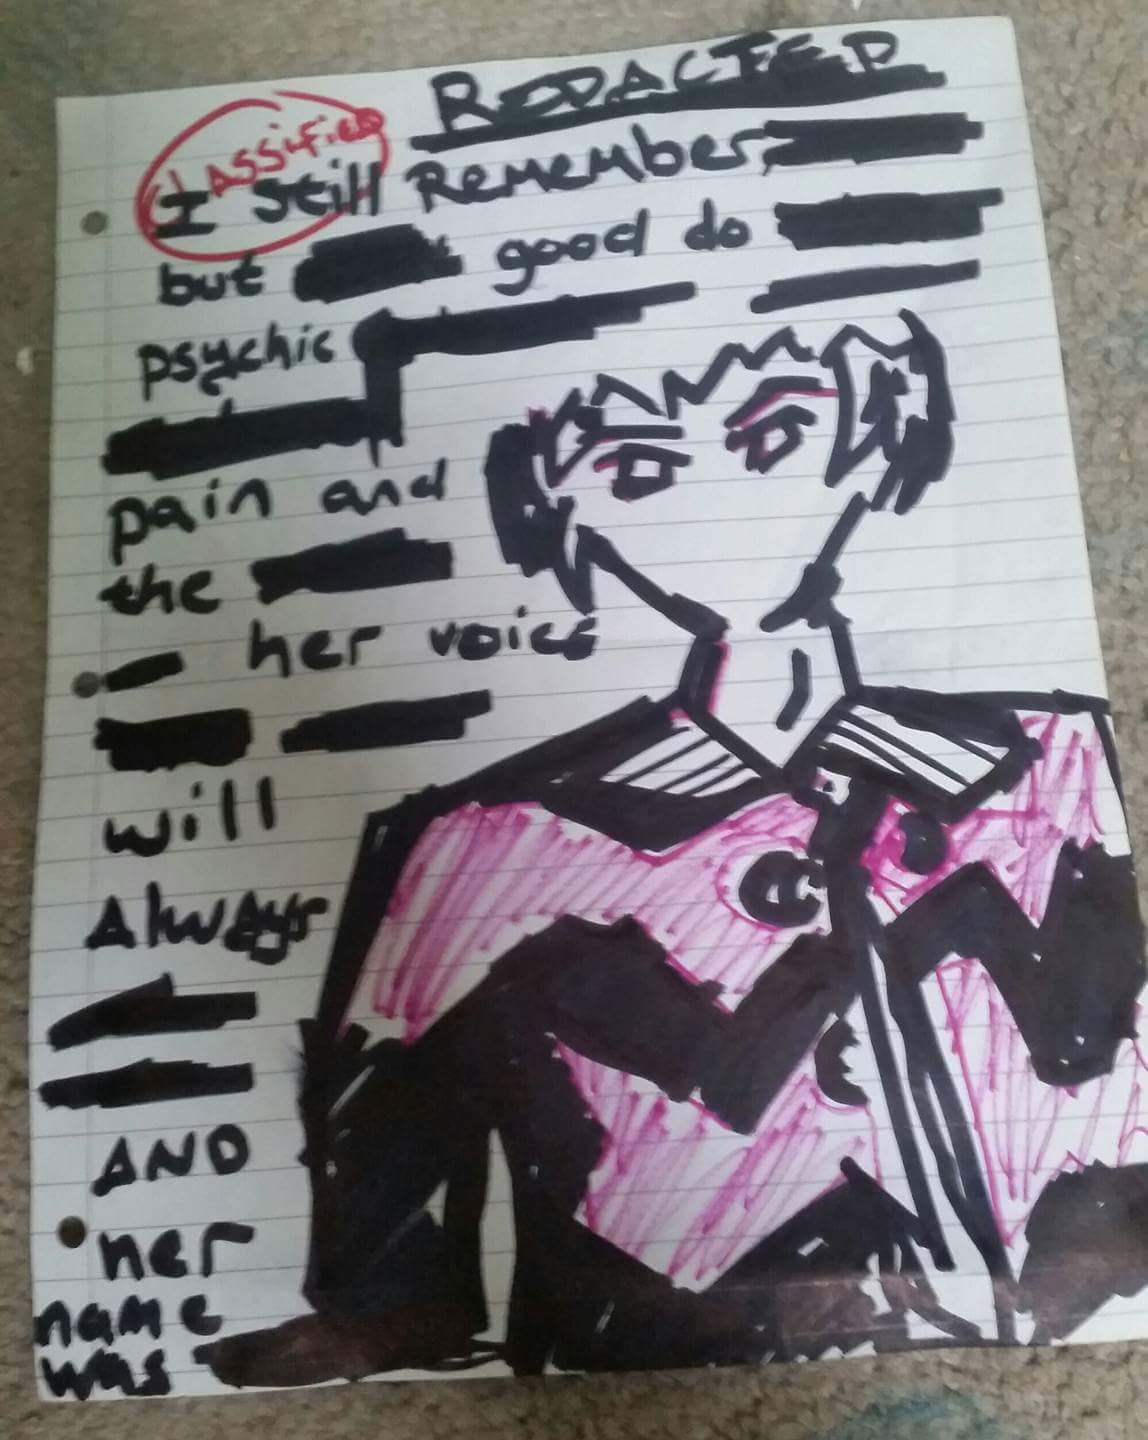 REDACTED
CLASSIFIED
I still Remember,
but good do
psychic
pain and
the
her voice
will
Always
AND
her
name
was